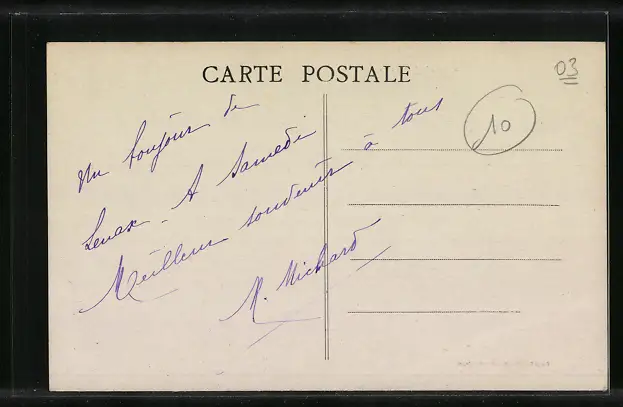 CARTE POSTALE
03
10
Un bonjour de
Lenax. A Samedi
Meilleurs souvenirs à tous
M. Michard